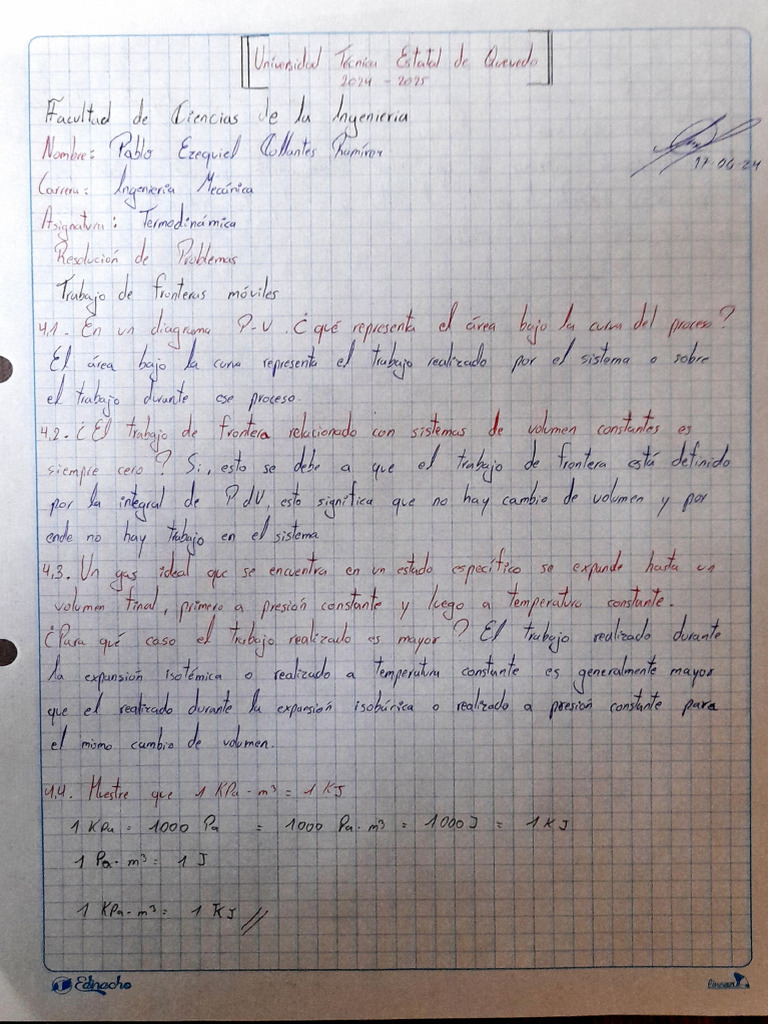 Universidad Técnica Estatal de Quevedo
2024 - 2025
Facultad de Ciencias de la Ingenieria
Nombre: Pablo Ezequiel Collantes Ramírez
17-06-24
Carrera: Ingenieria Mecánica
Asignatura: Termodinámica
Resolución de Problemas
Trabajo de fronteras móviles
4.1. En un diagrama P-V. ¿qué representa el área bajo la curva del proceso?
El área bajo la curva representa el trabajo realizado por el sistema o sobre
el trabajo durante ese proceso.
4.2. ¿El trabajo de frontera relacionado con sistemas de volumen constantes es
siempre cero? Si, esto se debe a que el trabajo de frontera está definido
por la integral de P dV, esto significa que no hay cambio de volumen y por
ende no hay trabajo en el sistema
4.3. Un gas ideal que se encuentra en un estado específico se expande hasta un
volumen final, primero a presión constante y luego a temperatura constante.
¿Para qué caso el trabajo realizado es mayor? El trabajo realizado durante
la expansión isotémica o realizado a temperatura constante es generalmente mayor
que el realizado durante la expansión isobárica o realizado a presión constante para
el mismo cambio de volumen.
4.4. Muestre que 1 KPa - m³ = 1 KJ
1 KPa = 1000 Pa = 1000 Pa - m³ = 1000 J = 1 KJ
1 Pa - m³ = 1 J
1 KPa - m³ = 1 KJ //
Ednacho